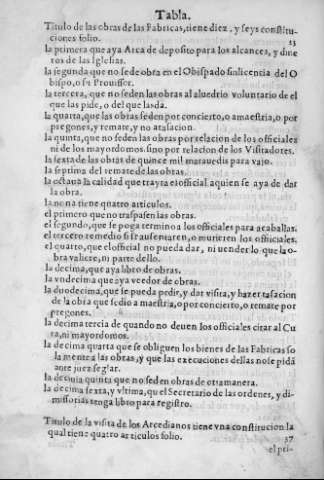 Tabla.
Titulo de las obras de las Fabricas, tiene diez, y seys constitu-
ciones folio. 23
la primera que aya Arca de deposito para los alcances, y dine
ros de las Iglesias.
la segunda que no se de obra en el Obispado sin licencia del O
bispo, o su Prouisor.
la tercera, que no se den las obras al aluedrio voluntario de el
que las pide, o del que las da.
la quarta, que las obras se den por concierto, o a maestria, o por
pregones, y remate, y no a tasacion.
la quinta, que no se den las obras por relacion de los officiales
ni de los mayordomos, sino por relacion de los Visitadores.
la sexta de las obras de quince mil marauedis para vajo.
la septima del remate de las obras.
la octaua la calidad que trayra el official a quien se aya de dar
la obra.
la nona tiene quatro articulos.
el primero que no traspasen las obras.
el segundo, que se ponga termino a los officiales para acaballas.
el tercero remedio si se ausentaren, o murieren los officiales.
el quarto, que el official no pueda dar, ni vender lo que la o-
bra valiere, ni parte dello.
la decima, que aya libro de obras.
la vndecima que aya veedor de obras.
la duodecima, que se pueda pedir, y dar visita, y hazer tasacion
de la obra que se dio a maestria, o por concierto, o remate por
pregones.
la decima tercia de quando no deuen los officiales citar al Cu
ra, ni mayordomos.
la decima quarta que se obliguen los bienes de las Fabricas so
la mente a las obras, y que las execuciones dellas no se pidã
ante juez seglar.
la decima quinta que no se den obras de otra manera.
la decima sexta, y vltima, que el Secretario de las ordenes, y di-
missorias tenga libro para registro.
Titulo de la visita de los Arcedianos tiene vna constitucion la
qual tiene quatro articulos folio. 37
el pri-